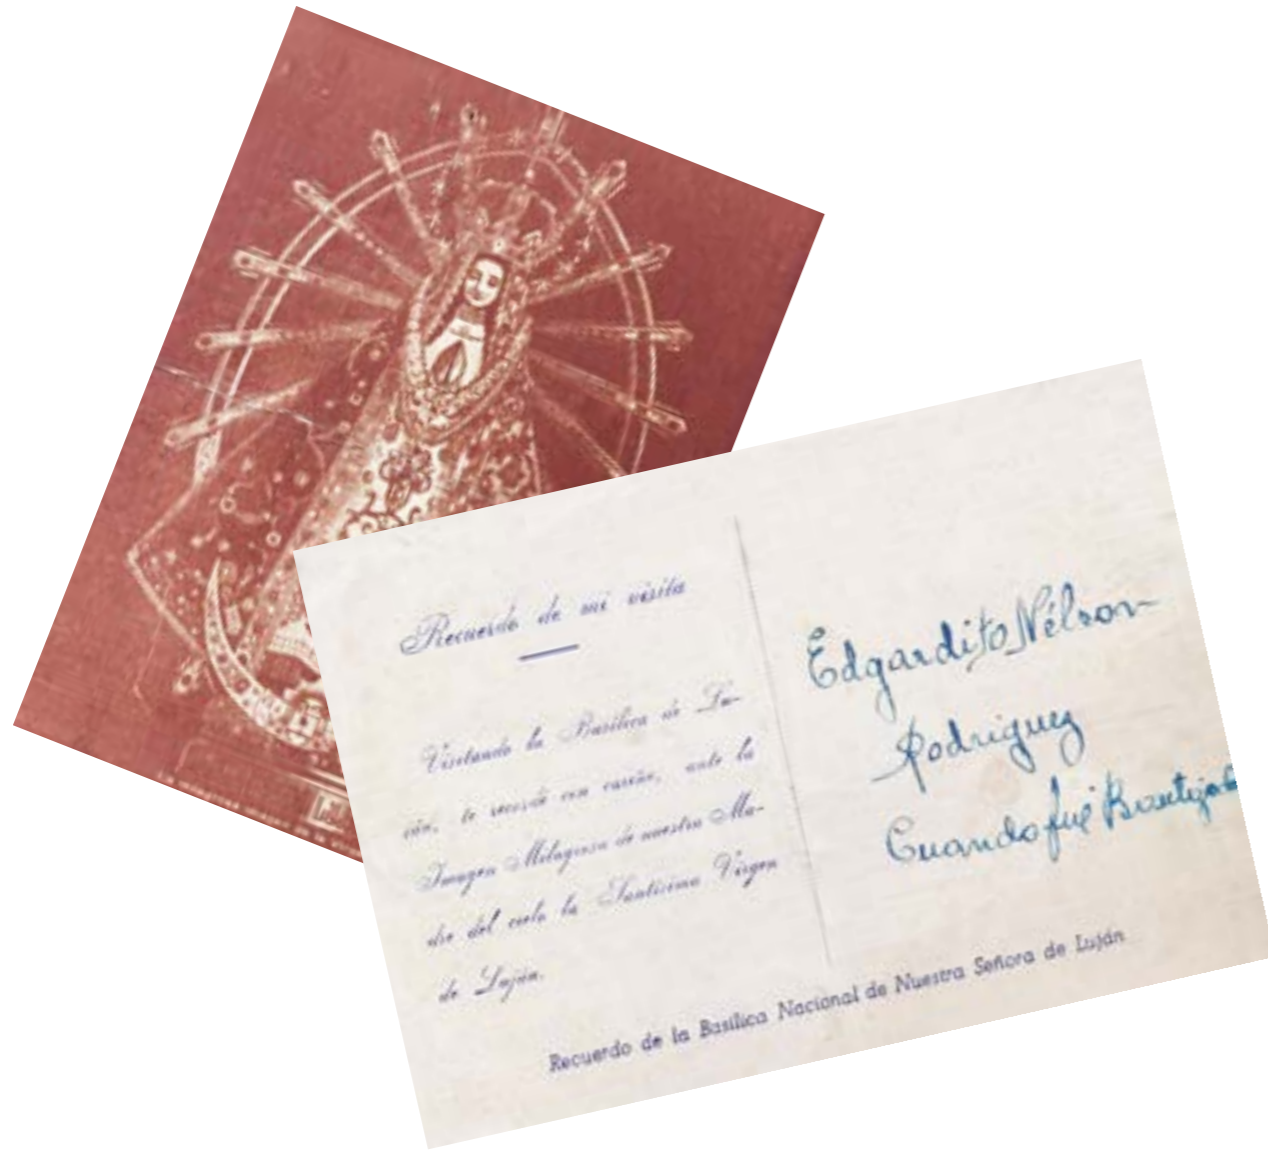 Recuerdo de mi visita
Visitando la Basílica de Lu-
ján, te recordé con cariño, ante la
Imagen Milagrosa de nuestra Ma-
dre del cielo la Santísima Virgen
de Luján.
Edgardito Nélson
Rodriguez
Cuando fué
Recuerdo de la Basílica Nacional de Nuestra Señora de Luján